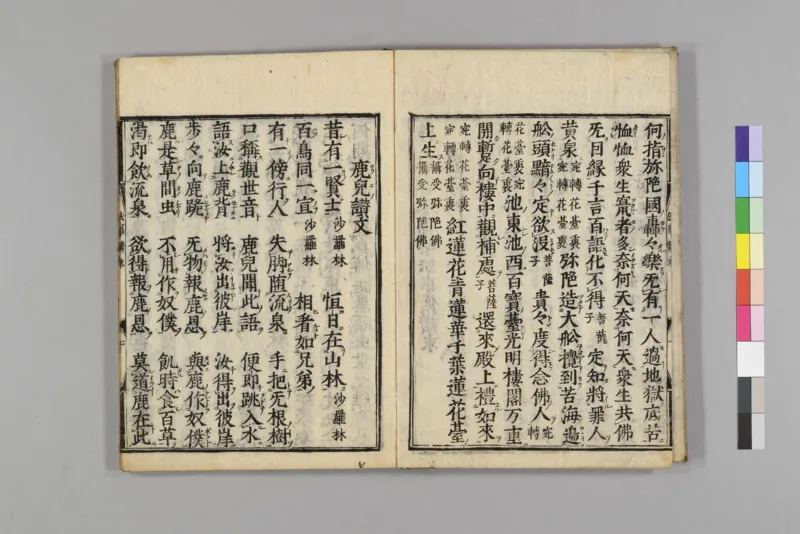 何指弥陁國轟々樂死有一人過地獄底苦
恤恤衆生寃者多奈何天奈何天衆生共佛
死因縁千言百語化不得菩薩子 定知將罪人
黄泉宛轉花臺裏宛轉花臺裏 弥陁造大舩攬到苦海邊
舩頭黯々定欲没菩薩子 貴々度得念佛人宛轉
花臺裏宛轉花臺裏 池東池西百寳臺光明樓閣万重
開暫向樓中觀補處菩薩子 還來殿上禮如來
宛轉花臺裏宛轉花臺裏 紅蓮花青蓮華千葉蓮花臺
上生攝受弥陁佛攝受弥陁佛
鹿兒讃文
昔有一賢士沙羅林 恒日在山林沙羅林
百鳥同一宜沙羅林 相者如兄弟
有一傍行人 失脚堕流泉 手把死根樹
口稱觀世音 鹿兒聞此語 便即跳入水
語汝上鹿背 将汝出彼岸 汝得出彼岸
歩々向鹿跪 死物報鹿恩 與鹿作奴僕
鹿是草間虫 不用作奴僕 飢時食百草
渇即飲流泉 欲得報鹿恩 莫道鹿在此